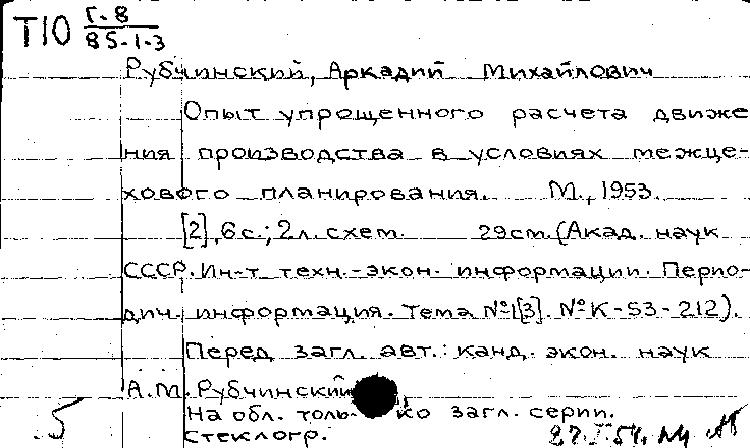 Т10 Г-8
85-1-3
Рубчинский, Аркадий Михайлович
Опыт упрощенного расчета движе
ния производства в условиях межце-
хового планирования. М., 1953.
[2], 6 с.; 2 л. схем. 29 см. (Акад. наук
СССР. Ин-т техн.-экон. информации. Перио-
дич. информация. Тема №1[3]. № К-53-212).
Перед загл. авт.: канд. экон. наук
А.М. Рубчинский
На обл. толь- ко загл. серии.
5 стеклогр.